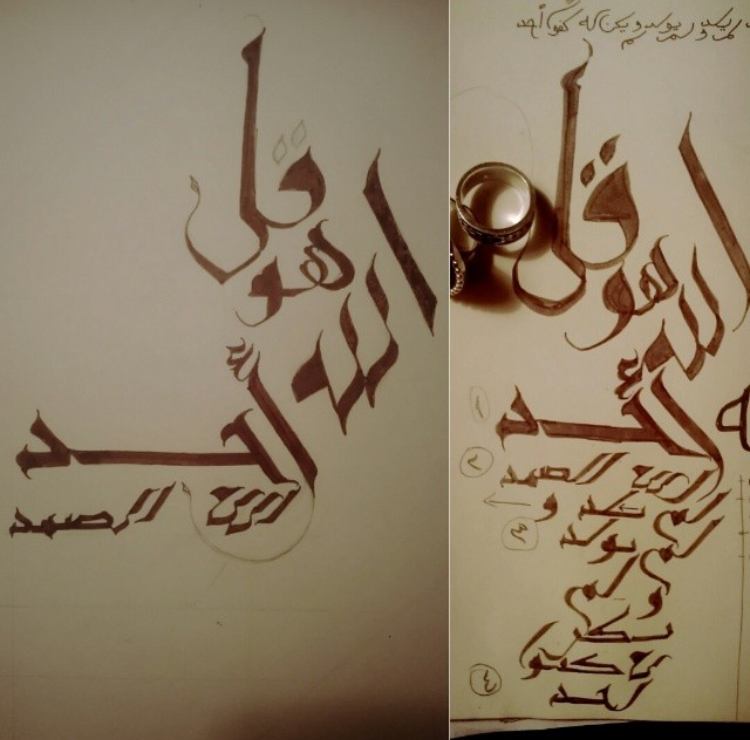 قل
هو
الله
أحد
الله الصمد
لم يلد ولم يولد و يكن له كفوا أحد
قل
هو
الله
أحد
الله الصمد
لم يلد و
لم يولد
و لم
يكن
له كفوا
أحد